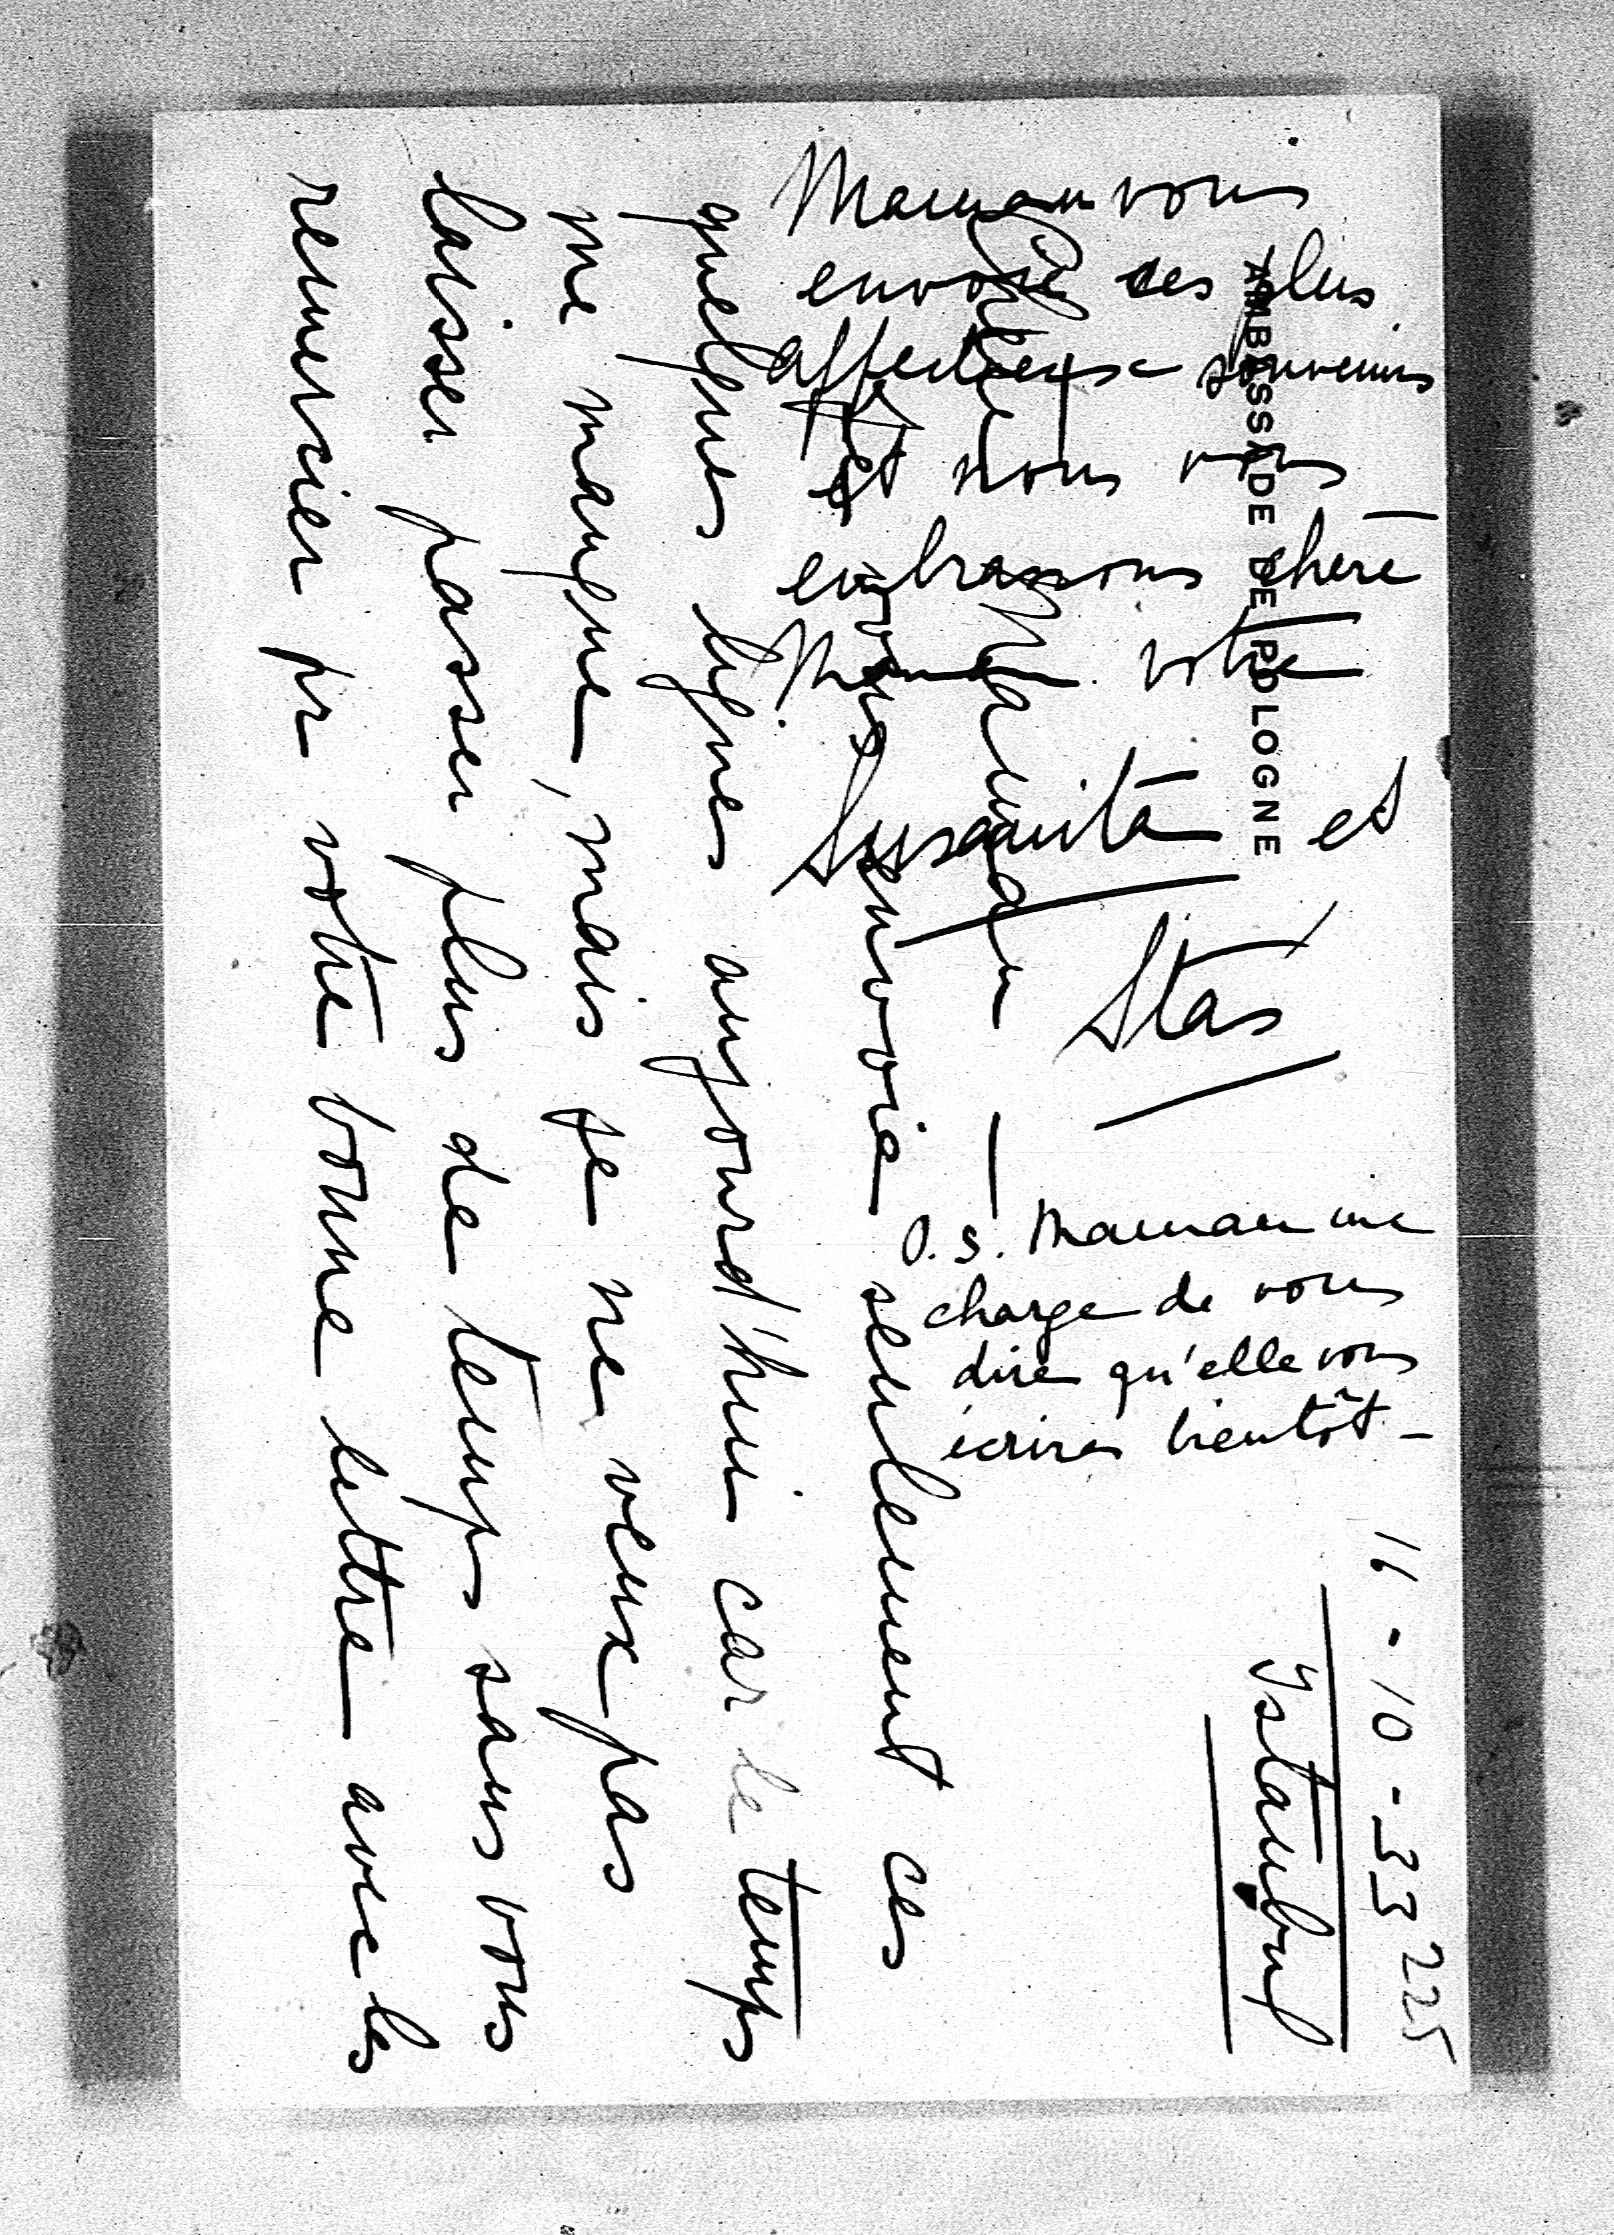 AMBASSADE DE POLOGNE
225
16-10-33
Ystambul
Chère Maman —
Je vous envoie seulement ces
quelques lignes aujourd'hui car le temps
me manque, mais je ne veux pas
laisser passer plus de temps sans vous
remercier pr votre bonne lettre avec les
Maman vous
envoie ses plus
affectueux souvenirs
et nous vous
embrassons chère
Maman. votre
Susanita et
Stas
P.S. Maman me
charge de vous
dire qu'elle vous
écrira bientôt —